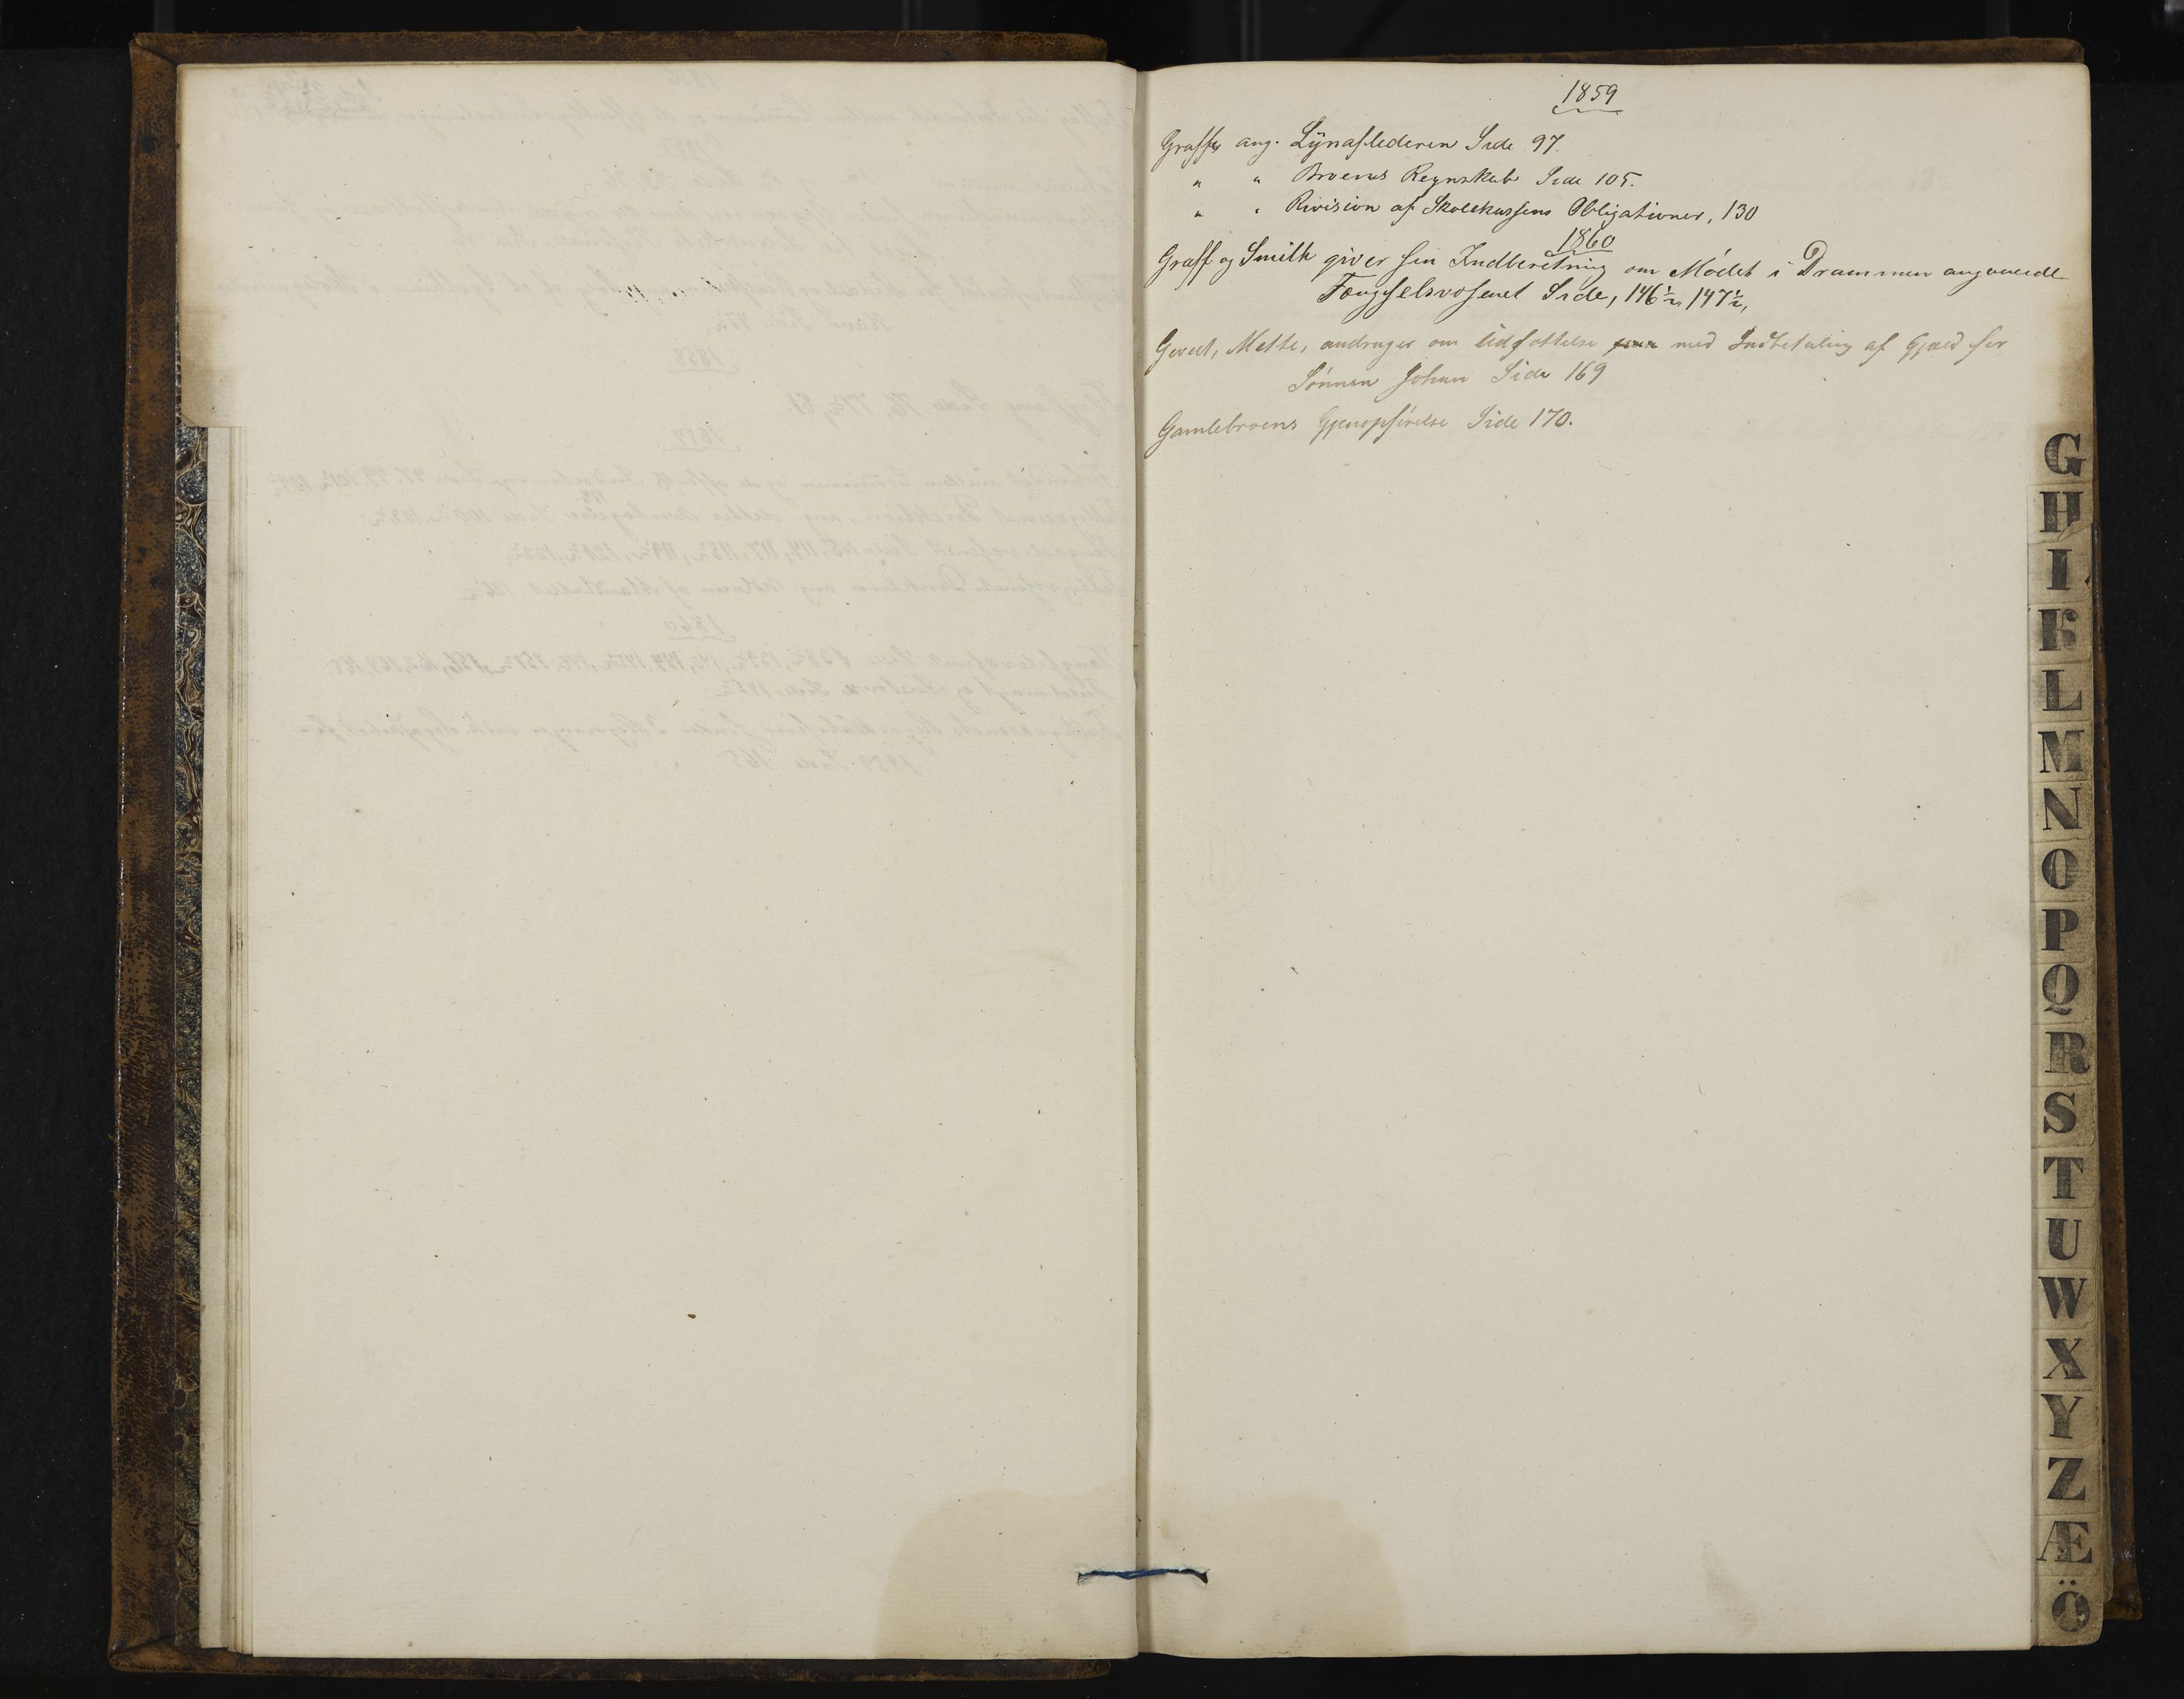 1859
Graffs ang. Lynaflederen Side 97.
" " Broens Regnskab Side 105.
" " Rivision af Skolekassens Obligationer, 130
1860
Graff og Smith giver sin Indberetning om Mödet i Drammen angaaende
Fængselsvæsenet Side, 146½, 147½,
Mette, andrager om Udsættelse med Indbetaling af Gjæld for
Sönnen Johan Side 169
Gamlebroens Gjenopförelse Side 170.
G
H
I
K
L
M
N
O
P
Q
R
S
T
U
W
X
Y
Z
Æ
Ö